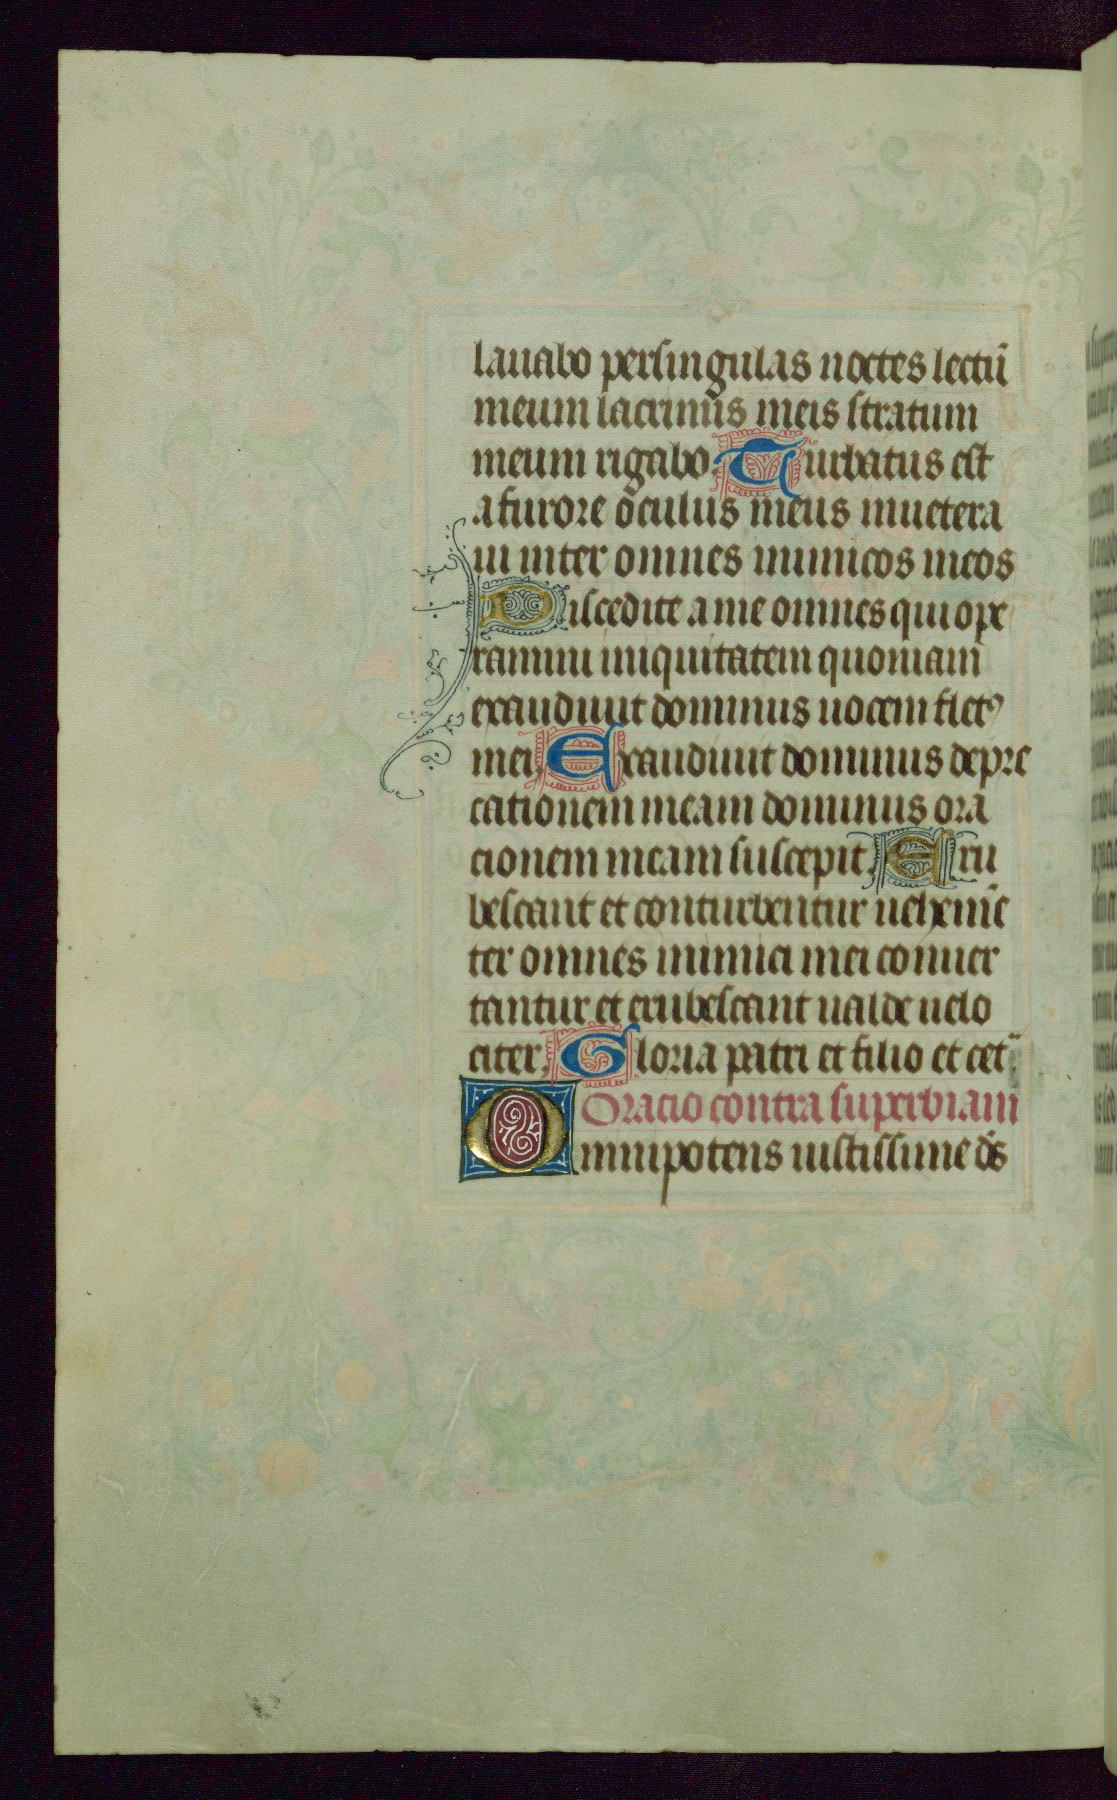 lauabo persingulas noctes lectū
meum lacrimis meis stratum
meum rigabo. Turbatus est
a furore oculus meus inuetera
ui inter omnes inimicos meos
Discedite a me omnes qui ope
ramini iniquitatem quoniam
exaudiuit dominus uocem flet⁹
mei. Exaudiuit dominus depre
cationem meam dominus ora
cionem meam suscepit. Eru
bescant et conturbentur uehemē
ter omnes inimici mei conuer
tantur et erubescant ualde uelo
citer. Gloria patri et filio et cet
Oracio contra superbiam
Omnipotens iustissime ds̄